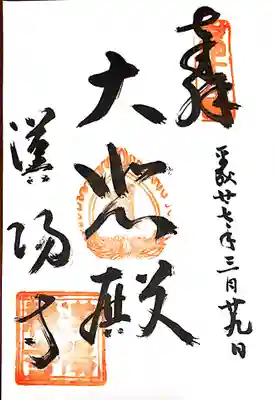 奉拝
平成廿七年三月廿九日
大光殿
漢陽寺